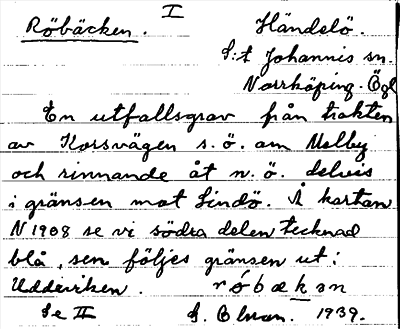 I
Röbäcken. Händelö.
S:t Johannis sn.
Norrköping. Ögl
En utfallsgrav från trakten
av Korsvägen s.ö. om Melby
och rinnande åt n.ö. delvis
i gränsen mot Lindö. Å kartan
N 1908 se vi södra delen tecknad
blå, sen följes gränsen ut i
Uddviken. róbækən
Se II S. Elvan. 1939.